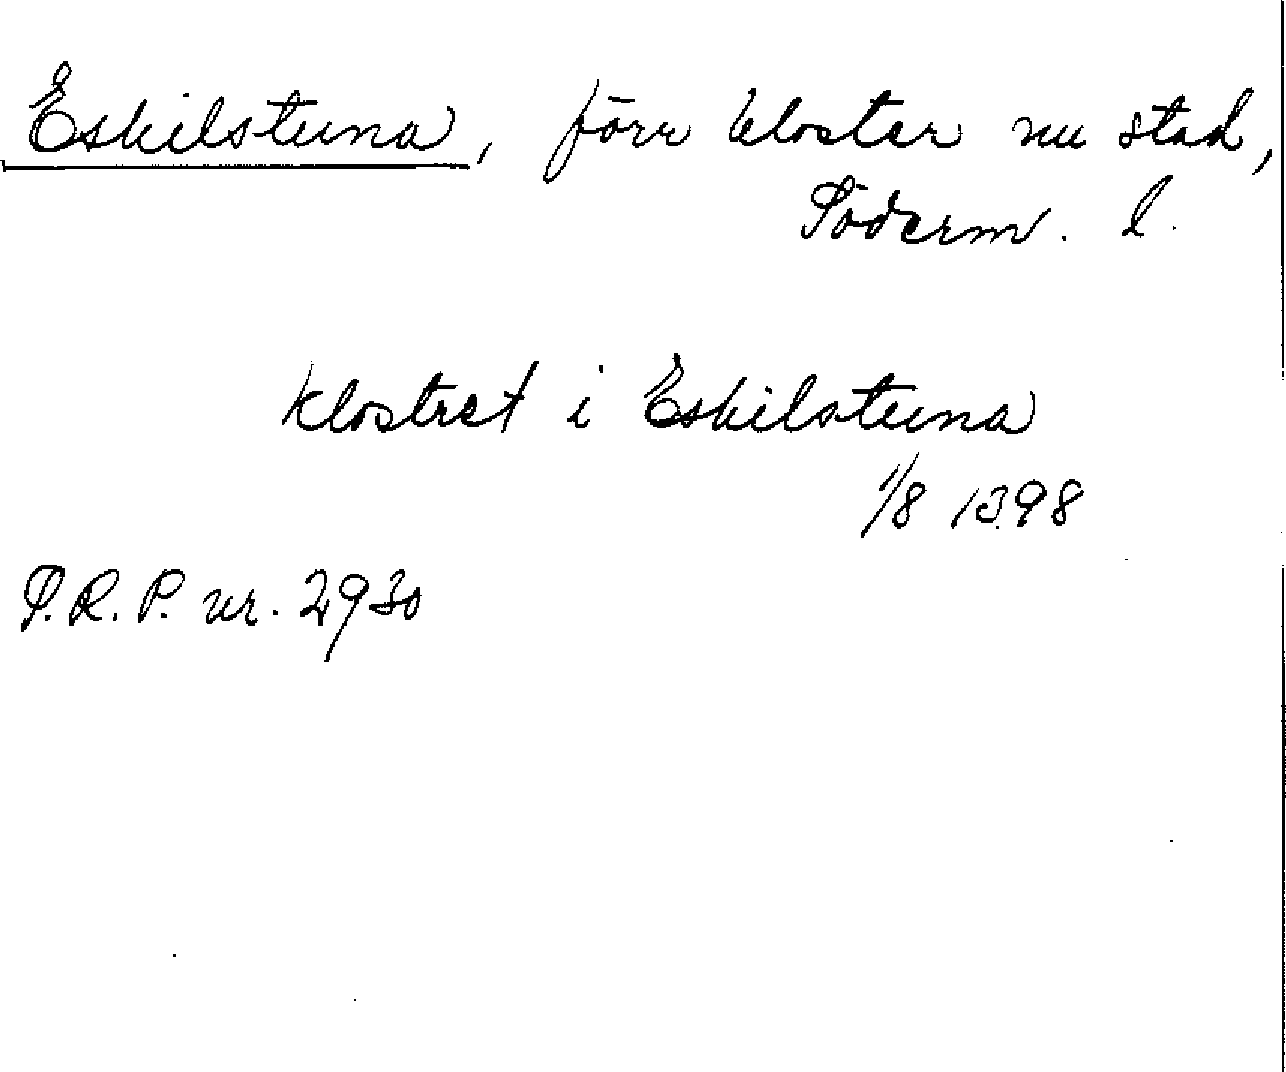 Eskilstuna, förr kloster nu stad,
Söderm. l.
klostret i Eskilstuna
1/8 1398
S.R.P. nr. 2930